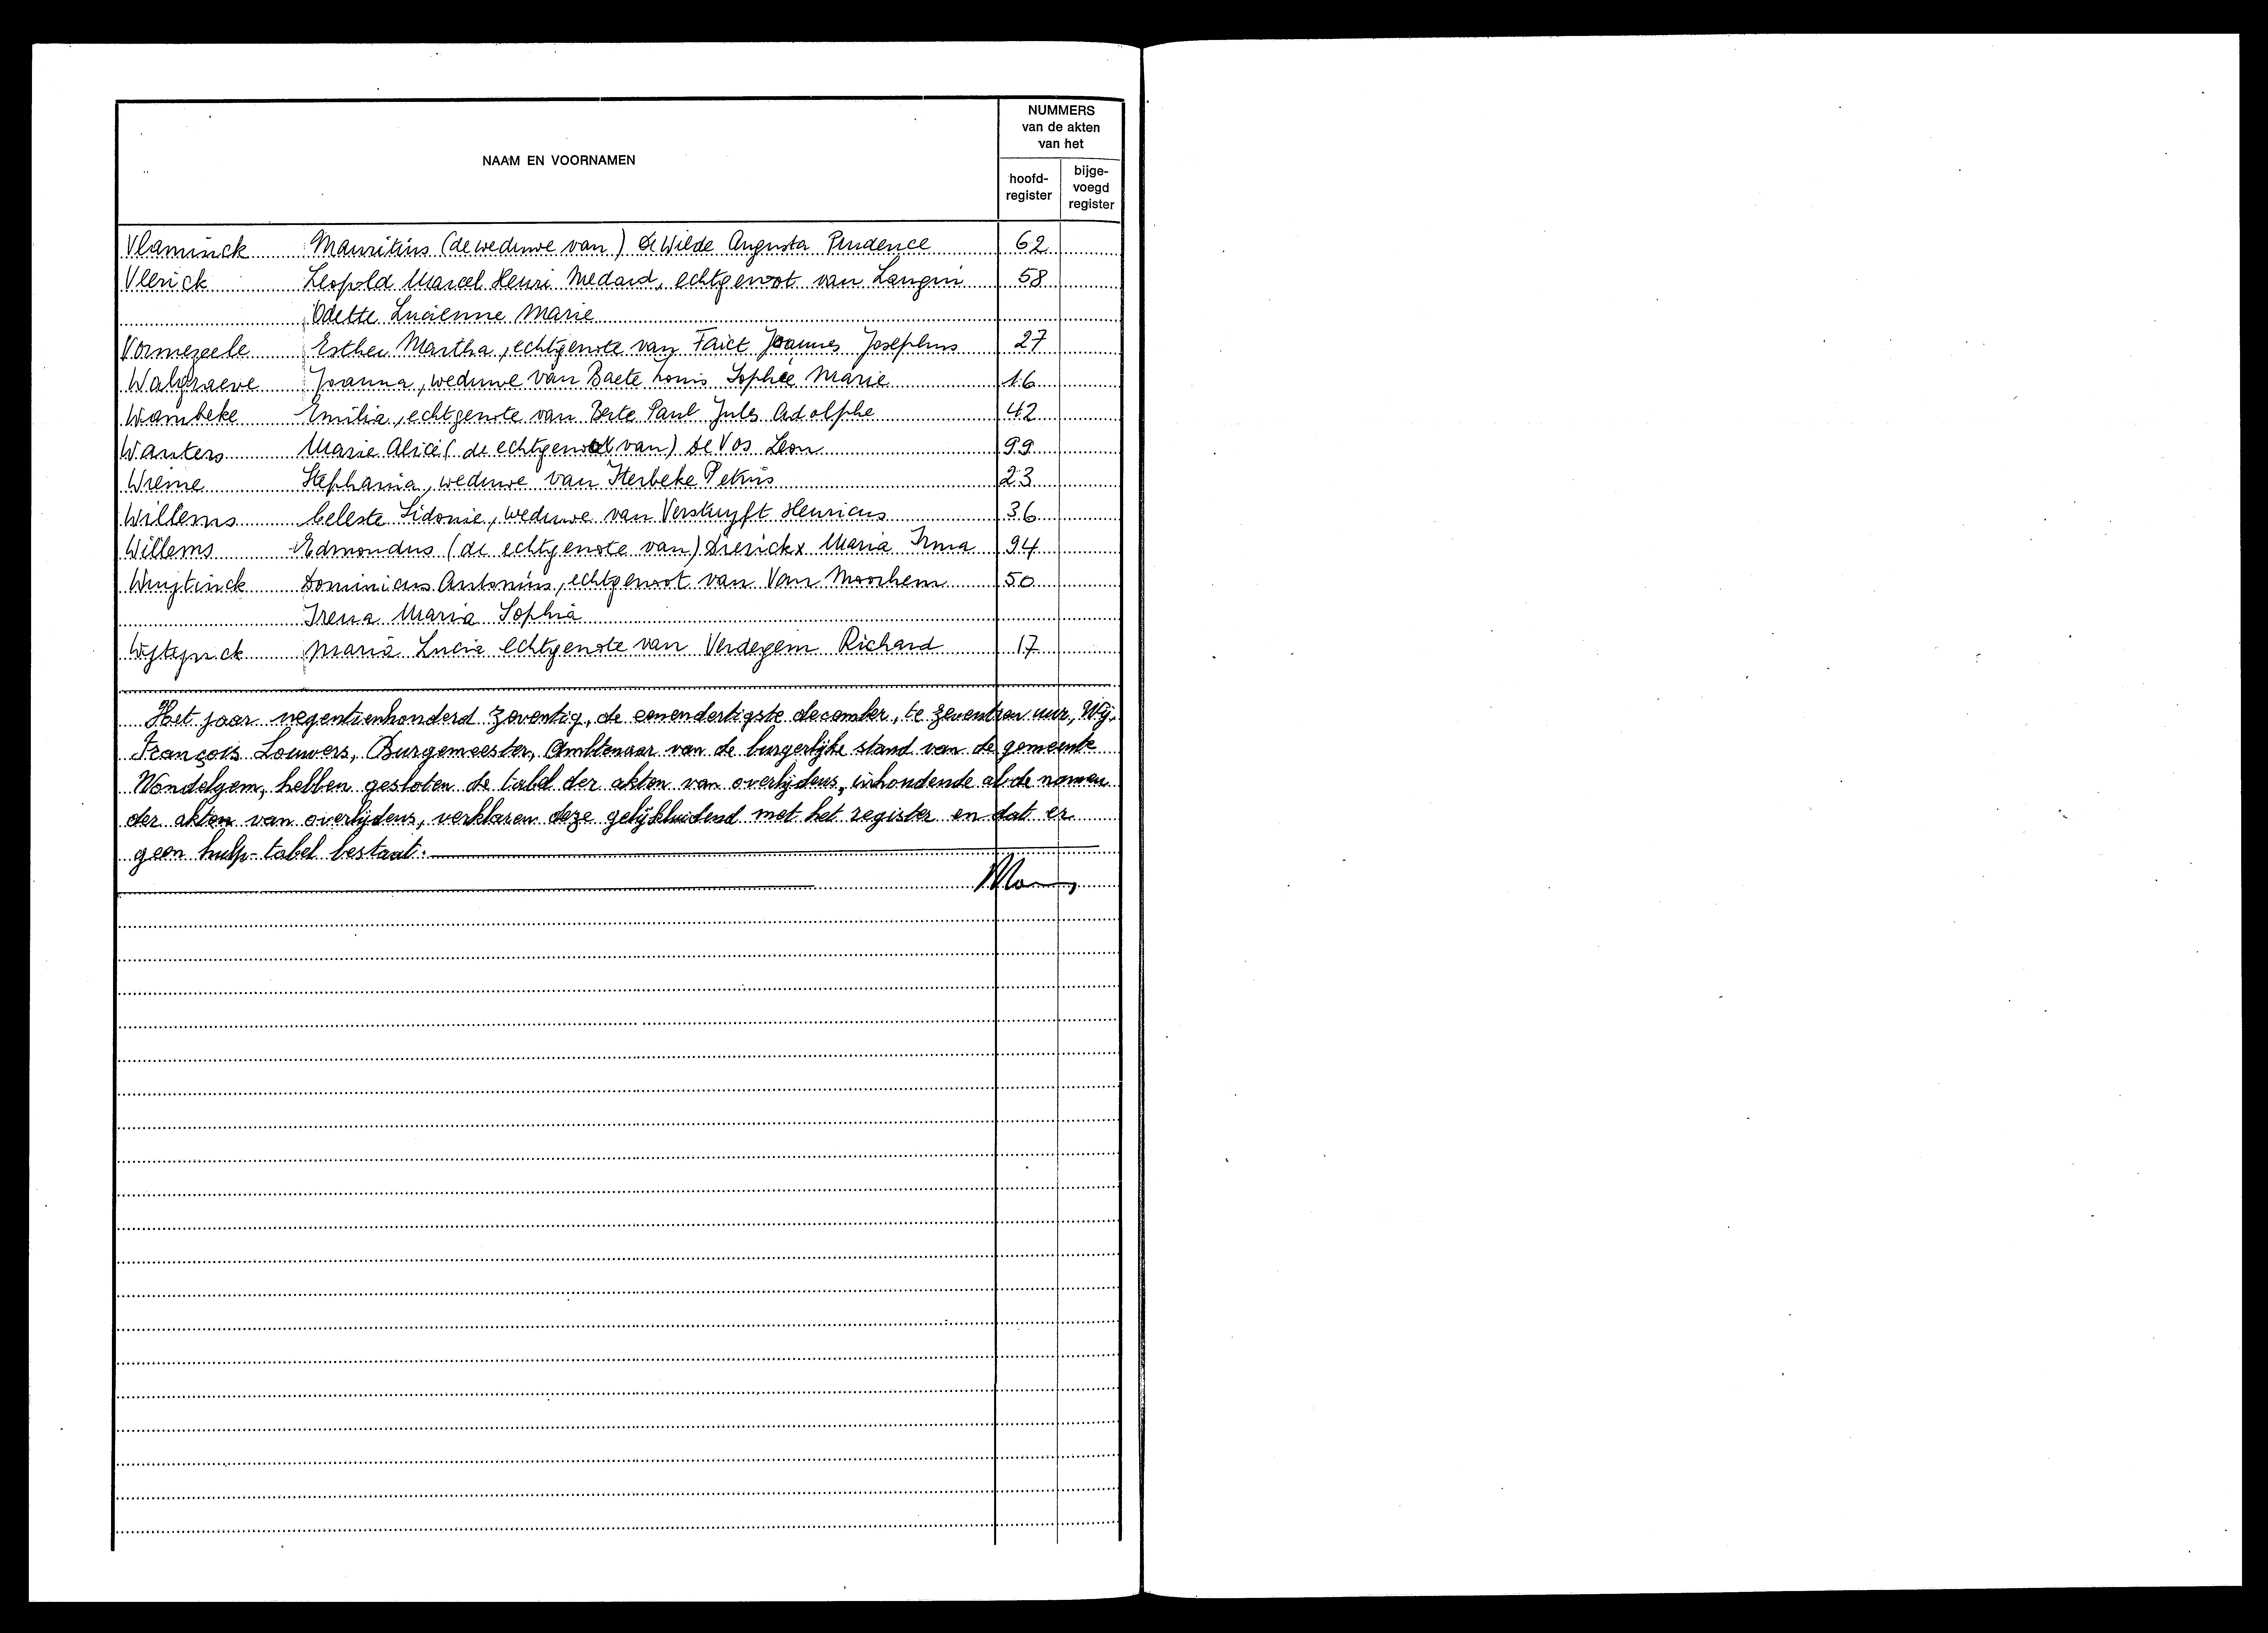 NAAM EN VOORNAMEN
NUMMERS
van de akten
van het
hoofd-
register
bijge-
voegd
register
Vlaminck Mauritius (de weduwe van) De Wilde Augusta Prudence 62
Vlerick Leopold Marcel Henri Medard, echtgenoot van Langin 58
Odette Lucienne Marie
Vormezeele Esther Martha, echtgenote van Faict Joannes Josephus 27
Walgraeve Joanna, weduwe van Baete Louis Sophie Marie 16
Wambeke Emilia, echtgenote van Berte Paul Jules Adolphe 42
Wauters Marie Alice (de echtgenoot van) De Vos Leon 99
Wieme Stephania, weduwe van Sterbeke Petrus 23
Willems Celeste Sidonie, weduwe van Verstuyft Henricus 36
Willems Edmondus (de echtgenote van) Dierickx Maria Irma 94
Wuytinck Dominicus Antonius, echtgenoot van Van Moorhem 50
Irena Maria Sophia
Wijtynck Maria Lucia echtgenote van Verdegem Richard 17
Het jaar negentienhonderd zeventig, de eenendertigste december, te zeventien uur, Wij,
François Louwers, Burgemeester, Ambtenaar van de burgerlijke stand van de gemeente
Wondelgem, hebben gesloten de tabel der akten van overlijdens, inhoudende al de namen
der akten van overlijdens, verklaren deze gelijkluidend met het register en dat er
geen hulp-tabel bestaat.